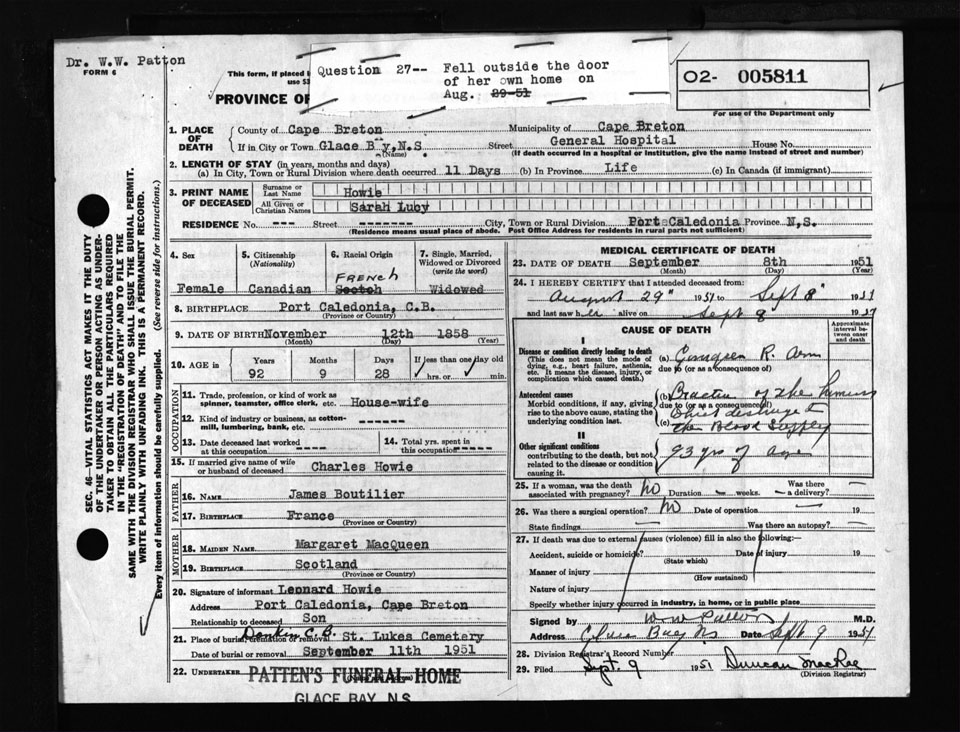 Dr. W.W. Patton
FORM 6
This form, if placed i
use 53
PROVINCE OF
Question 27-- Fell outside the door
of her own home on
Aug. 29-51
O2- 005811
For use of the Department only
SEC. 46—VITAL STATISTICS ACT MAKES IT THE DUTY
OF THE UNDERTAKER OR PERSON ACTING AS UNDER-
TAKER TO OBTAIN ALL THE PARTICULARS REQUIRED
IN THE "REGISTRATION OF DEATH" AND TO FILE THE
SAME WITH THE DIVISION REGISTRAR WHO SHALL ISSUE THE BURIAL PERMIT.
WRITE PLAINLY WITH UNFADING INK. THIS IS A PERMANENT RECORD.
Every item of information should be carefully supplied. (See reverse side for instructions.)
1. PLACE OF DEATH
County of Cape Breton Municipality of Cape Breton
If in City or Town Glace B y, N.S Street General Hospital House No.
(Name) (If death occurred in a hospital or institution, give the name instead of street and number)
2. LENGTH OF STAY (in years, months and days)
(a) In City, Town or Rural Division where death occurred 11 Days (b) In Province Life (c) In Canada (if immigrant)
3. PRINT NAME OF DECEASED
Surname or Last Name Howie
All Given or Christian Names Sarah Lucy
RESIDENCE No. --- Street ------- City, Town or Rural Division Port Caledonia Province N.S.
(Residence means usual place of abode. Post Office Address for residents in rural parts not sufficient)
4. Sex Female
5. Citizenship (Nationality) Canadian
6. Racial Origin FRENCH Scotch
7. Single, Married, Widowed or Divorced (write the word) Widowed
8. BIRTHPLACE Port Caledonia, C.B.
(Province or Country)
9. DATE OF BIRTH November 12th 1858
(Month) (Day) (Year)
10. AGE Years 92 Months 9 Days 28 If less than one day old hrs. or min.
OCCUPATION
11. Trade, profession, or kind of work as spinner, teamster, office clerk, etc. House-wife
12. Kind of industry or business, as cotton-mill, lumbering, bank, etc. ------
13. Date deceased last worked at this occupation -----
14. Total yrs. spent in this occupation -----
15. If married give name of wife or husband of deceased Charles Howie
FATHER
16. NAME James Boutilier
17. BIRTHPLACE France
(Province or Country)
MOTHER
18. MAIDEN NAME Margaret MacQueen
19. BIRTHPLACE Scotland
(Province or Country)
20. Signature of informant Leonard Howie
Address Port Caledonia, Cape Breton
Relationship to deceased Son
21. Place of burial, cremation or removal Donkin C.B. St. Lukes Cemetery
Date of burial or removal September 11th 1951
22. UNDERTAKER PATTEN'S FUNERAL HOME
(Name and Address)
GLACE BAY, N.S.
MEDICAL CERTIFICATE OF DEATH
23. DATE OF DEATH September 8th 1951
(Month) (Day) (Year)
24. I HEREBY CERTIFY that I attended deceased from:
August 29" 1951 to Sept 8" 1951
and last saw her alive on Sept 8 1951
CAUSE OF DEATH
Approximate interval between onset and death
I
Disease or condition directly leading to death
(This does not mean the mode of dying, e.g., heart failure, asthenia, etc. It means the disease, injury, or complication which caused death.)
(a) R. Arm
due to (or as a consequence of)
Antecedent causes
Morbid conditions, if any, giving rise to the above cause, stating the underlying condition last.
(b) of the Humerus
due to (or as a consequence of)
(c) the Blood Supply
II
Other significant conditions
contributing to the death, but not related to the disease or condition causing it.
93 yrs of age
25. If a woman, was the death associated with pregnancy? No Duration — weeks. Was there — a delivery?
26. Was there a surgical operation? No Date of operation — 19
State findings — Was there an autopsy? —
27. If death was due to external causes (violence) fill in also the following:—
Accident, suicide or homicide? Date of injury 19
(State which)
Manner of injury
(How sustained)
Nature of injury
Specify whether injury occurred in industry, in home, or in public place
Signed by W W Patton M.D.
Address Glace Bay NS Date Sept 9 1951
28. Division Registrar's Record Number
29. Filed Sept. 9 1951 Duncan MacRae
(Division Registrar)